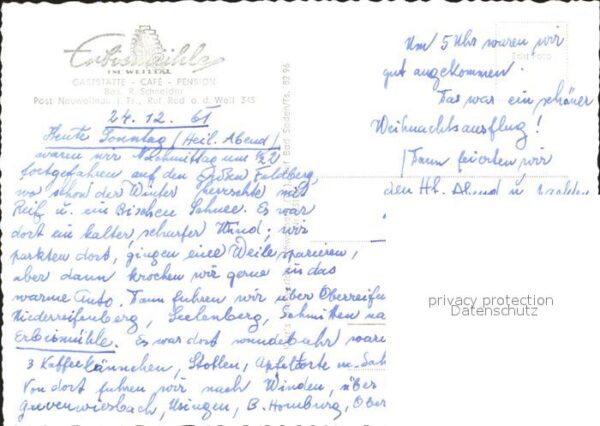 Erbismühle
IM WEILTAL
GASTSTÄTTE - CAFÉ - PENSION
Bes. R. Schneider
Post Neuweilnau i. Ts., Ruf Rod a. d. Weil 345
24.12.61
Heute Sonntag (Heil. Abend)
waren wir Nachmittag um ½2
fortgefahren auf den großen Feldberg
wo schon der Winter herrschte mit
Reif u. ein Bischen Schnee. Es war
dort ein kalter, scharfer Wind; wir
parkten dort, gingen eine Weile spazieren,
aber dann krochen wir gerne in das
warme Auto. Dann fuhren wir über Oberreifen
Niederreifenberg, Seelenberg, Schmitten na
Erbismühle. Es war dort wunderbahr
3 Kaffeekännchen, Stollen, Apfeltorte m. Sah
Von dort fuhren wir nach Winden, über
Gräfenwiesbach, Usingen, B. Homburg, Ober
Um 5 Uhr waren wir
gut angekommen.
Das war ein schöner
Weihnachtsausflug!
(Dann feierten wir
den Hl. Abend u.
Bad Soden/Ts. 82 96
Echt Foto
privacy protection
Datenschutz